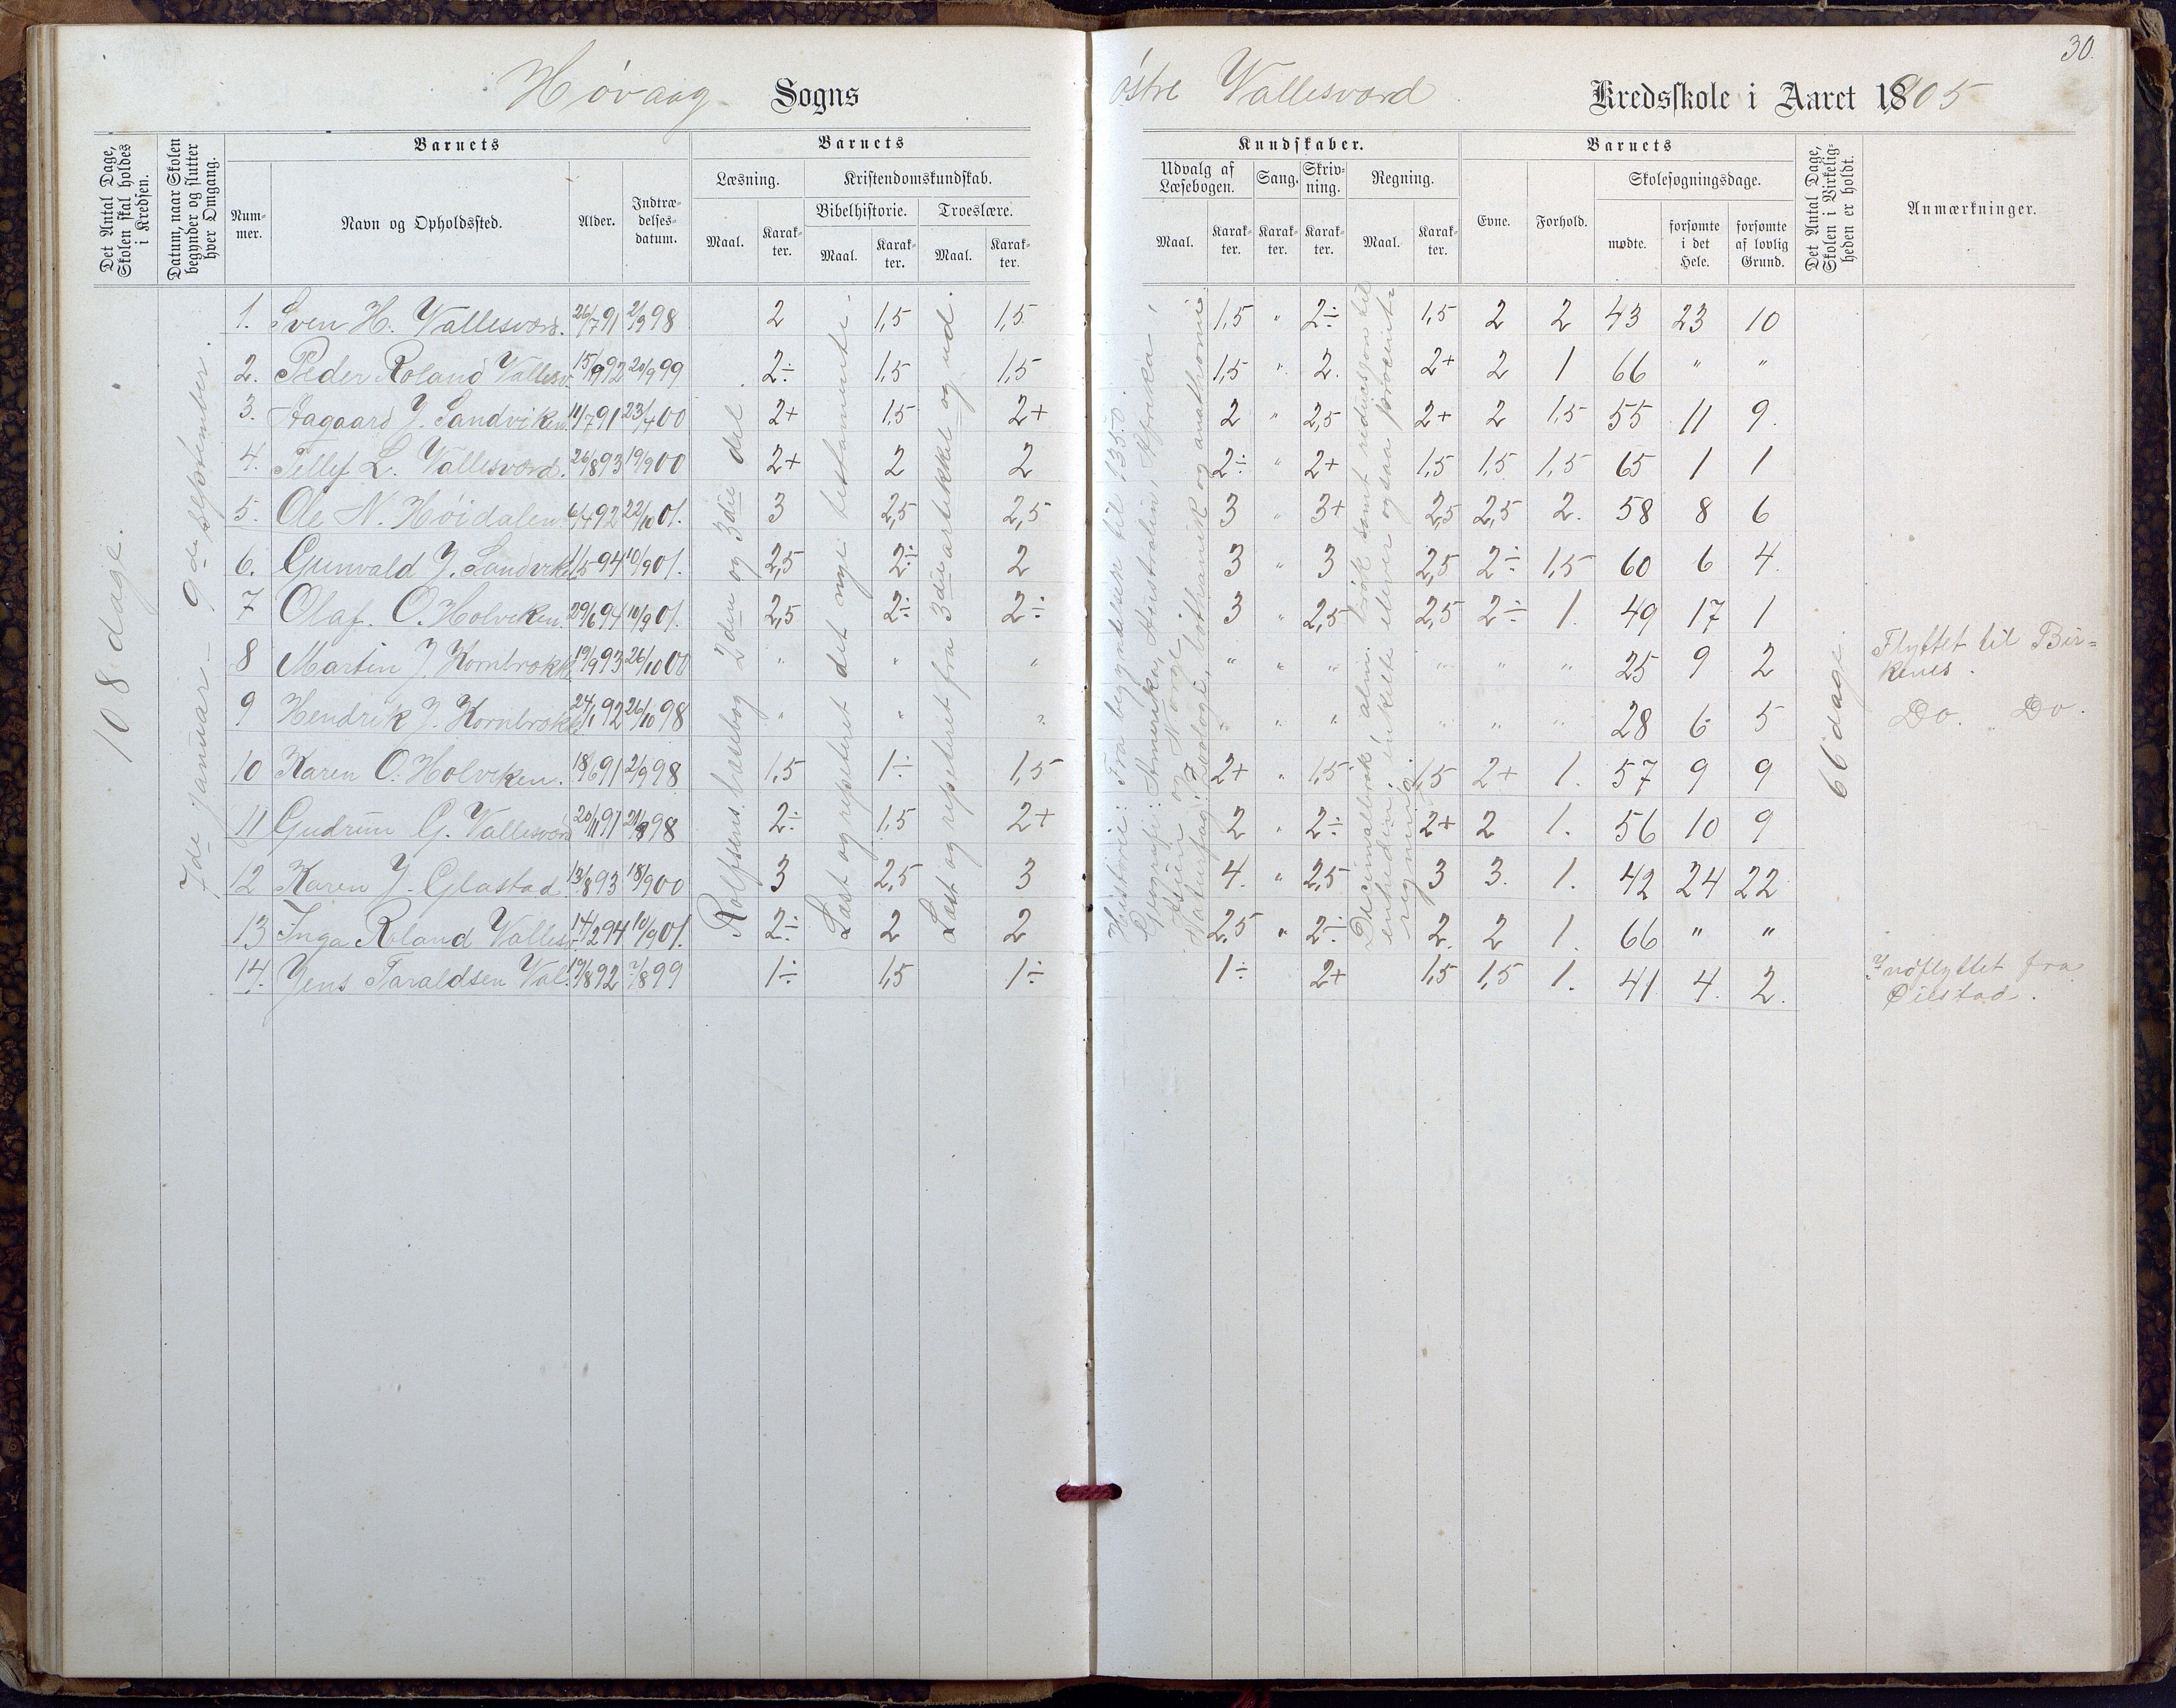 30.
Høvaag Sogns
østre Vallesværd Kredsskole i Aaret 1905
Det Antal Dage, Skolen skal holdes i Kredsen.
Datum, naar Skolen begynder og slutter hver Omgang.
Barnets
Nummer.
Navn og Opholdssted.
Alder.
Indtrædelsesdatum.
Barnets
Læsning.
Maal.
Karakter.
Kristendomskundskab.
Bibelhistorie.
Maal.
Karakter.
Troeslære.
Maal.
Karakter.
Kundskaber.
Udvalg af Læsebogen.
Maal.
Karakter.
Sang.
Karakter.
Skrivning.
Karakter.
Regning.
Maal.
Karakter.
Barnets
Evne.
Forhold.
Skolesøgningsdage.
mødte.
forsømte i det Hele.
forsømte af lovlig Grund.
Det Antal Dage, Skolen i Virkeligheden er holdt.
Anmærkninger.
108 dage.
7de januar - 9de september.
Rolfsens læsebog 2den og 3die del
Læst og repeteret det nye testamente.
Læst og repeteret fra 3die artikkel og ud.
Historie: Fra begyndelsen til 1350.
Geografi: Amerika, Australien, Afrika,
Asien og Norge.
Naturfag: Zoologi, bothanik og anathomi.
Decimalbrøk, alm. brøk samt reduksjon til
enheden; enkelte elever ogsaa procent-
regning.
66 dage.
1. Sven H. Vallesværd. 26/7 91 2/9 98 2 1,5 1,5 1,5 " 2÷ 1,5 2 2 43 23 10
2. Peder Roland Vallesv. 15/9 92 20/9 99 2÷ 1,5 1,5 1,5 " 2. 2+ 2 1 66 " "
3. Aagaard J. Sandviken. 11/7 91 23/4 00 2+ 1,5 2+ 2 " 2,5 2+ 2 1,5 55 11 9.
4. Tellef L. Vallesværd. 26/8 93 19/9 00 2+ 2 2 2÷ " 2+ 1,5 1,5 1,5 65 1 1
5. Ole N. Høidalen 6/4 92 22/10 01. 3 2,5 2,5 3 " 3+ 2,5 2,5 2. 58 8 6
6. Gunvald J. Sandvik. 11/5 94 10/9 01. 2,5 2÷ 2 3 3 2,5 2÷ 1,5 60 6 4.
7 Olaf. O. Holviken. 29/6 94 10/9 01. 2,5 2÷ 2÷ 3 " 2,5 2,5 2÷ 1. 49 17 1
8 Martin J. Kornbrokk. 19/9 93 26/10 00 " " " " " " " " " 25 9 2 Flyttet til Birkenes.
9 Hendrik J. Kornbrokk. 24/1 92 26/10 98 " " " " " " " " " 28 6 5 Do. Do.
10 Karen O. Holviken. 18/6 91 2/9 98 1,5 1÷ 1,5 2+ " 1,5 1,5 2+ 1. 57 9 9
11 Gudrun G. Vallesværd 20/11 91 21/8 98 2÷ 1,5 2+ 2 " 2÷ 2+ 2 1. 56 10 9
12 Karen J. Glastad. 13/8 93 18/9 00 3 2,5 3 4. " 2,5 3 3. 1. 42 24 22
13 Inga Roland Vallesv. 14/2 94 10/9 01. 2÷ 2 2 2,5 " 2÷ 2. 2 1. 66 " "
14. Jens Taraldsen Val. 19/8 92 7/8 99 1÷ 1,5 1÷ 1÷ 2+ 1,5 1,5 1. 41 4. 2. Indflyttet fra Øiestad.